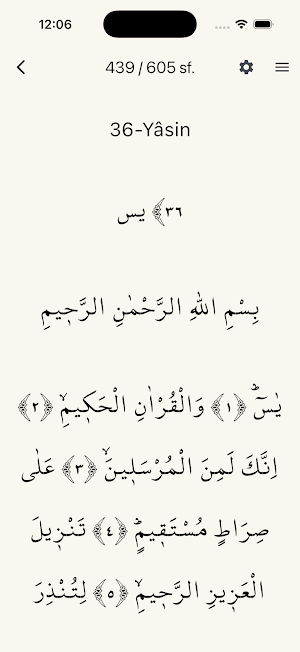 12:06
439 / 605 sf.
36-Yâsin
٣٦﴾ يس
بِسْمِ اللهِ الرَّحْمٰنِ الرَّح۪يمِ
يٰسٓۜ ﴿١﴾ وَالْقُرْاٰنِ الْحَك۪يمِۙ ﴿٢﴾
اِنَّكَ لَمِنَ الْمُرْسَل۪ينَۙ ﴿٣﴾ عَلٰى
صِرَاطٍ مُسْتَق۪يمٍۜ ﴿٤﴾ تَنْز۪يلَ
الْعَز۪يزِ الرَّح۪يمِۙ ﴿٥﴾ لِتُنْذِرَ